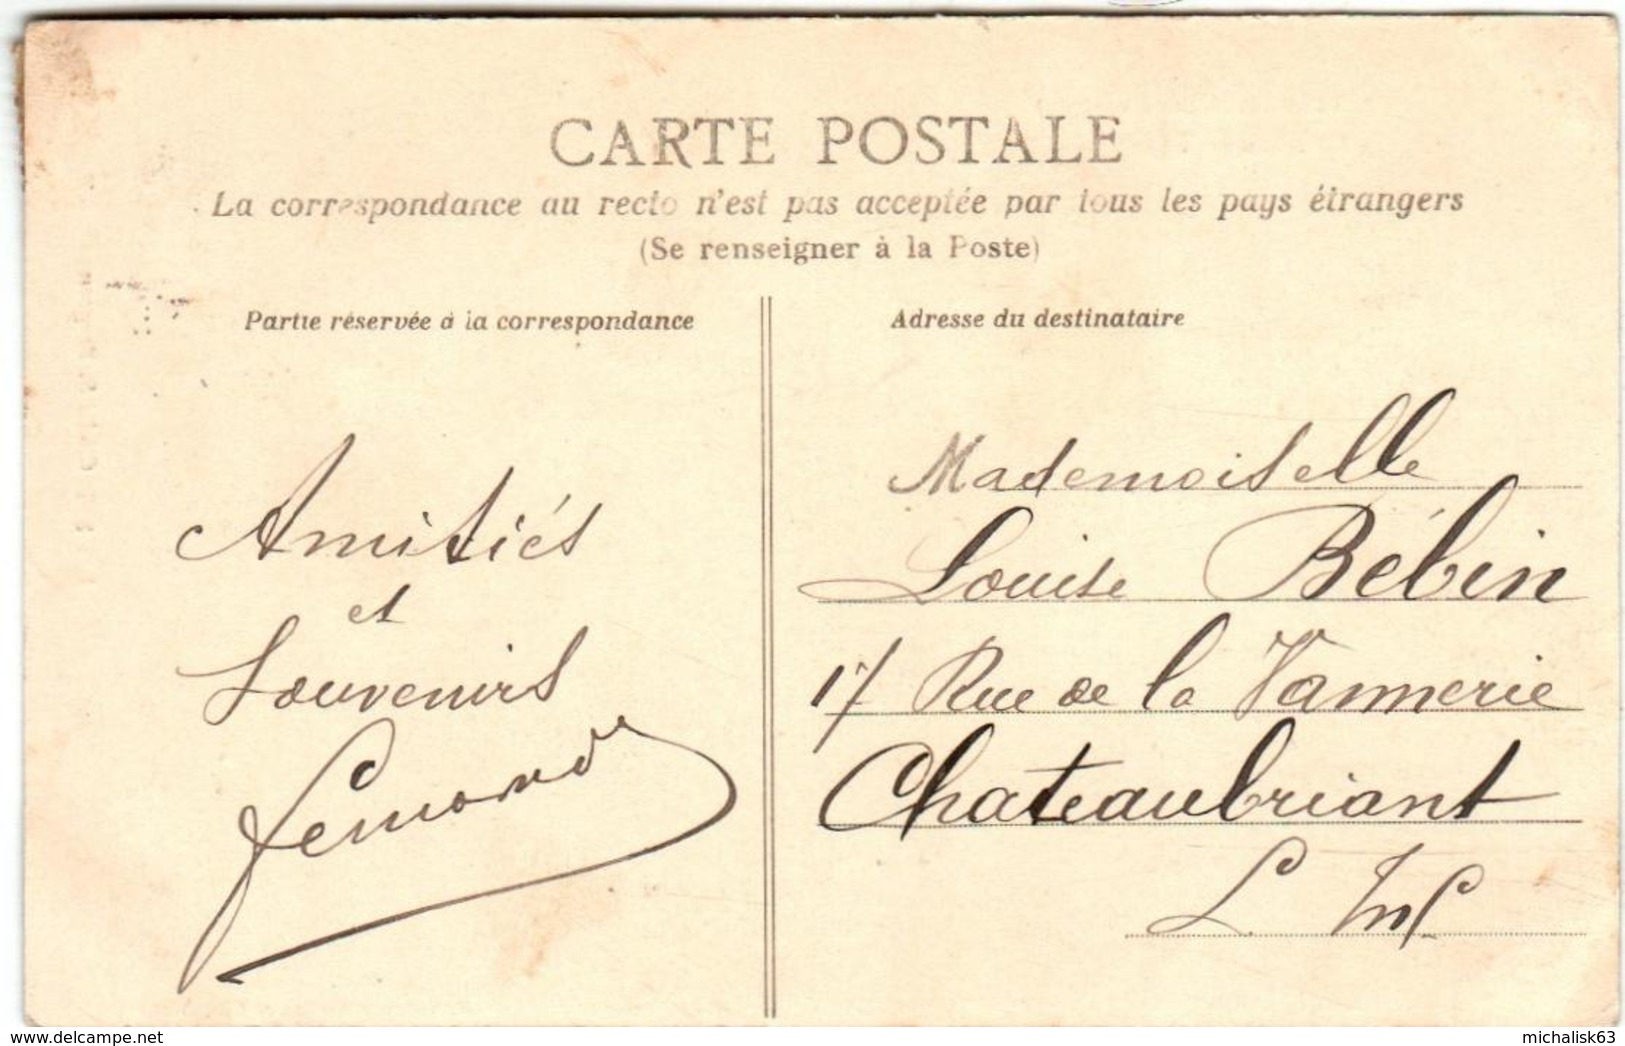 CARTE POSTALE
La correspondance au recto n'est pas acceptée par tous les pays étrangers
(Se renseigner à la Poste)
Partie réservée à la correspondance
Amitiés
et
Souvenirs
Adresse du destinataire
Mademoiselle
Louise Bébin
17 Rue de la Vannerie
Chateaubriant
L. Inf.
www.delcampe.net
michalisk63